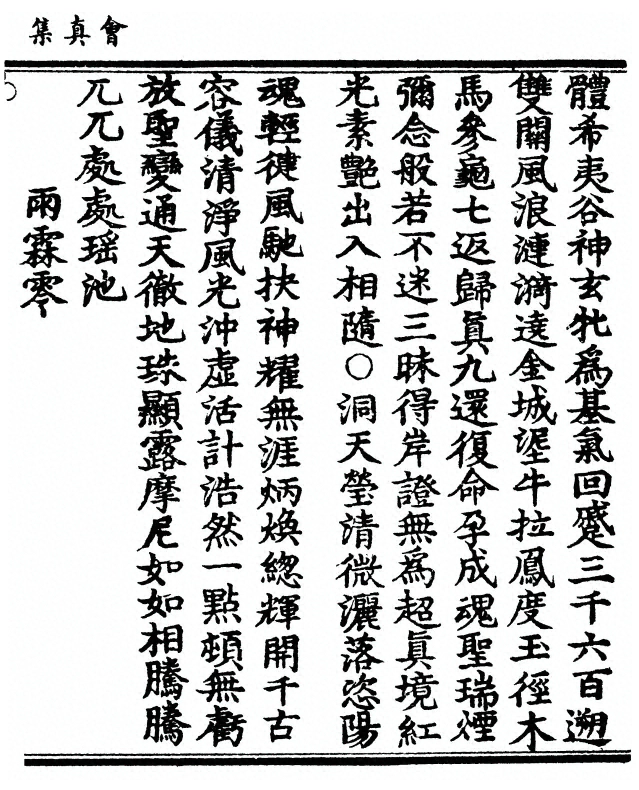 會真集
體希夷谷神玄牝為基氣回蹙三千六百遡
雙關風浪漣漪遶金城埿牛拉鳳度玉徑木
馬參龜七返歸真九還復命孕成魂聖瑞煙
彌念般若不迷三昧得岸證無為超真境紅
光素艷出入相隨○洞天瑩清微灑落恣陽
魂輕徤風馳扶神耀無涯炳煥總輝開千古
容儀清淨風光沖虛活計浩然一點頓無虧
放聖變通天徹地珠顯露摩尼如如相騰騰
兀兀處處瑶池
雨霖零